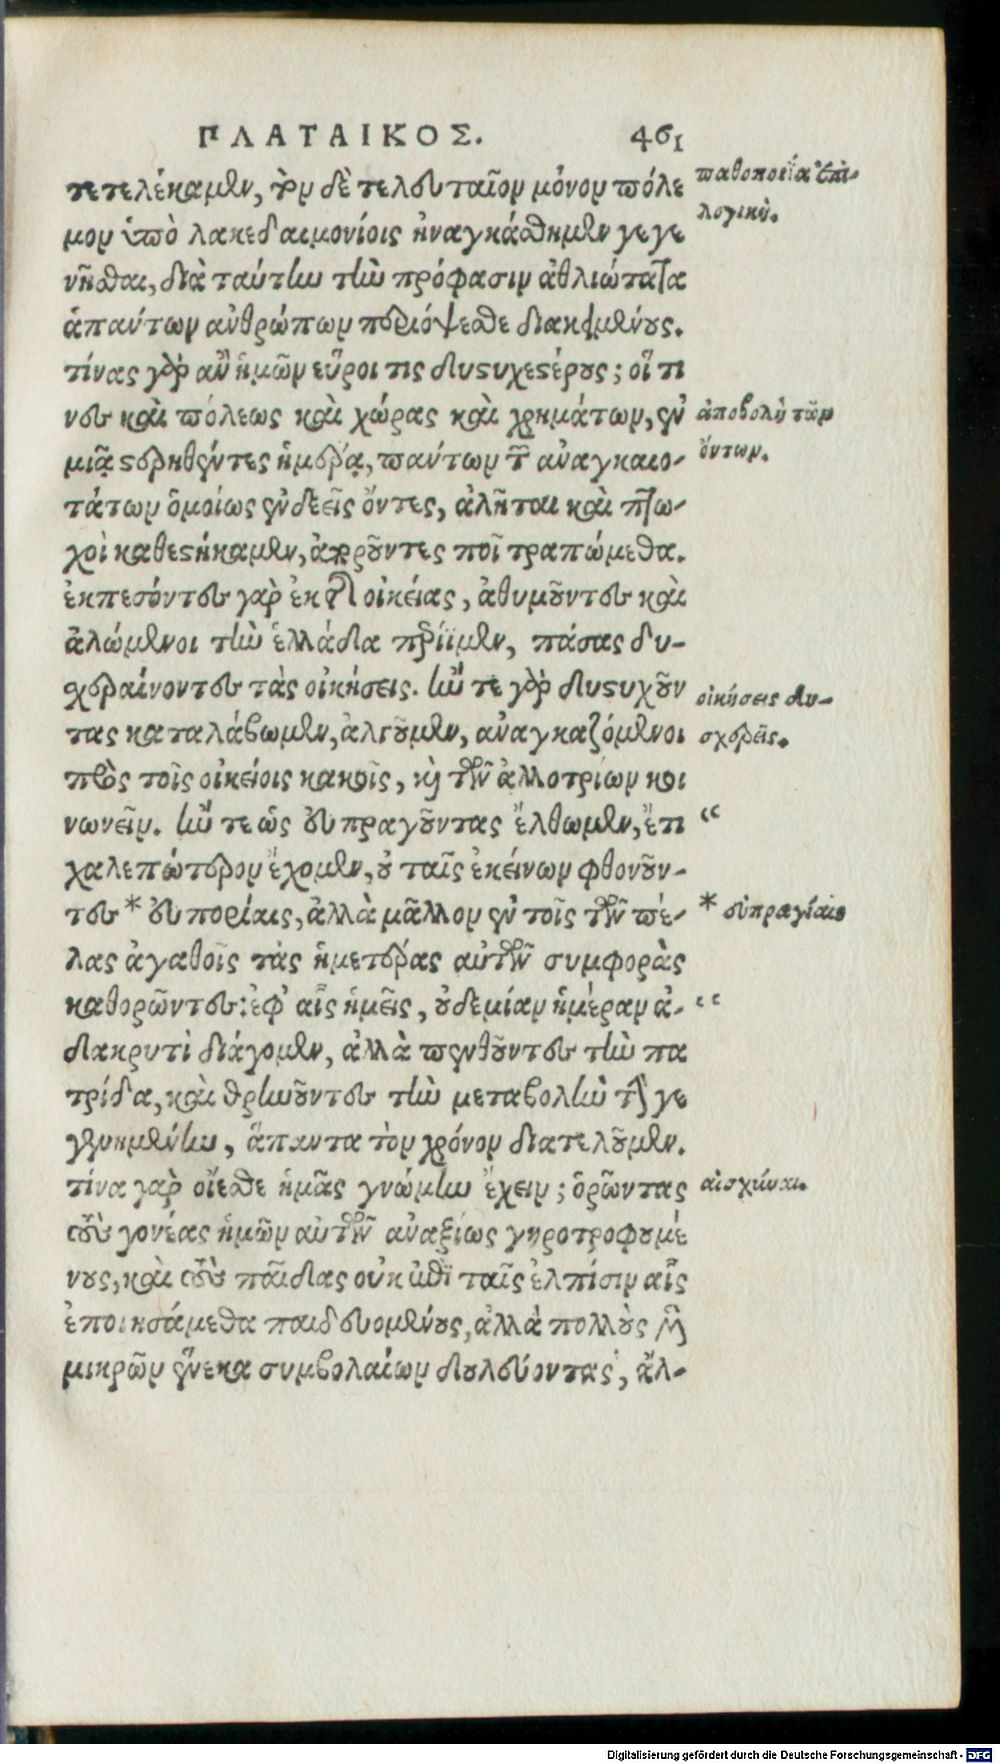 ΠΛΑΤΑΙΚΟΣ. 461
τετελέκαμεν, τὸν δὲ τελευταῖον μόνον πόλε
μον ὑπὸ λακεδαιμονίοις ἠναγκάσθημεν γεγε
νῆσθαι, διὰ ταύτην τὴν πρόφασιν ἀθλιώτατα
ἁπάντων ἀνθρώπων περιόψεσθε διακειμένους.
τίνας γὰρ ἂν ἡμῶν εὕροι τις δυστυχεστέρους; οἵ τι
νες καὶ πόλεως καὶ χώρας καὶ χρημάτων, ἐν
μιᾷ στερηθέντες ἡμέρᾳ, πάντων τῶν ἀναγκαιο-
τάτων ὁμοίως ἐνδεεῖς ὄντες, ἀλῆται καὶ πτω-
χοὶ καθεστήκαμεν, ἀποροῦντες ποῖ τραπώμεθα.
ἐκπεσόντες γὰρ ἐκ τῆς οἰκείας, ἀθυμοῦντες καὶ
ἀλώμενοι τὴν ἑλλάδα περίϊμεν, πάσας δυ-
σχεραίνοντες τὰς οἰκήσεις. ἤν τε γὰρ δυστυχοῦν
τας καταλάβωμεν, ἀλγοῦμεν, ἀναγκαζόμενοι
πρὸς τοῖς οἰκείοις κακοῖς, καὶ τῶν ἀλλοτρίων κοι
νωνεῖν. ἤν τε ὡς εὐπραγοῦντας ἔλθωμεν, ἔτι
χαλεπώτερον ἔχομεν, οὐ ταῖς ἐκείνων φθονοῦν-
τες * εὐπορίαις, ἀλλὰ μᾶλλον ἐν τοῖς τῶν πέ-
λας ἀγαθοῖς τὰς ἡμετέρας αὐτῶν συμφορὰς
καθορῶντες: ἐφ' αἷς ἡμεῖς, οὐδεμίαν ἡμέραν ἀ-
δακρυτὶ διάγομεν, ἀλλὰ πενθοῦντες τὴν πα
τρίδα, καὶ θρηνοῦντες τὴν μεταβολὴν τὴν γε
γενημένην, ἅπαντα τὸν χρόνον διατελοῦμεν.
τίνα γὰρ οἴεσθε ἡμᾶς γνώμην ἔχειν; ὁρῶντας
τοὺς γονέας ἡμῶν αὐτῶν ἀναξίως γηροτροφουμέ
νους, καὶ τοὺς παῖδας οὐκ ἐπὶ ταῖς ἐλπίσιν αἷς
ἐποιησάμεθα παιδευομένους, ἀλλὰ πολλοὺς μὲν
μικρῶν ἕνεκα συμβολαίων δουλεύοντας, ἄλ-
παθοποιΐα ἐπι-
λογική.
ἀποβολὴ τῶν
ὄντων.
οἰκήσεις δυ-
σχερεῖς.
“
* εὐπραγίαις
“
αἰσχύναι.
Digitalisierung gefördert durch die Deutsche Forschungsgemeinschaft - DFG